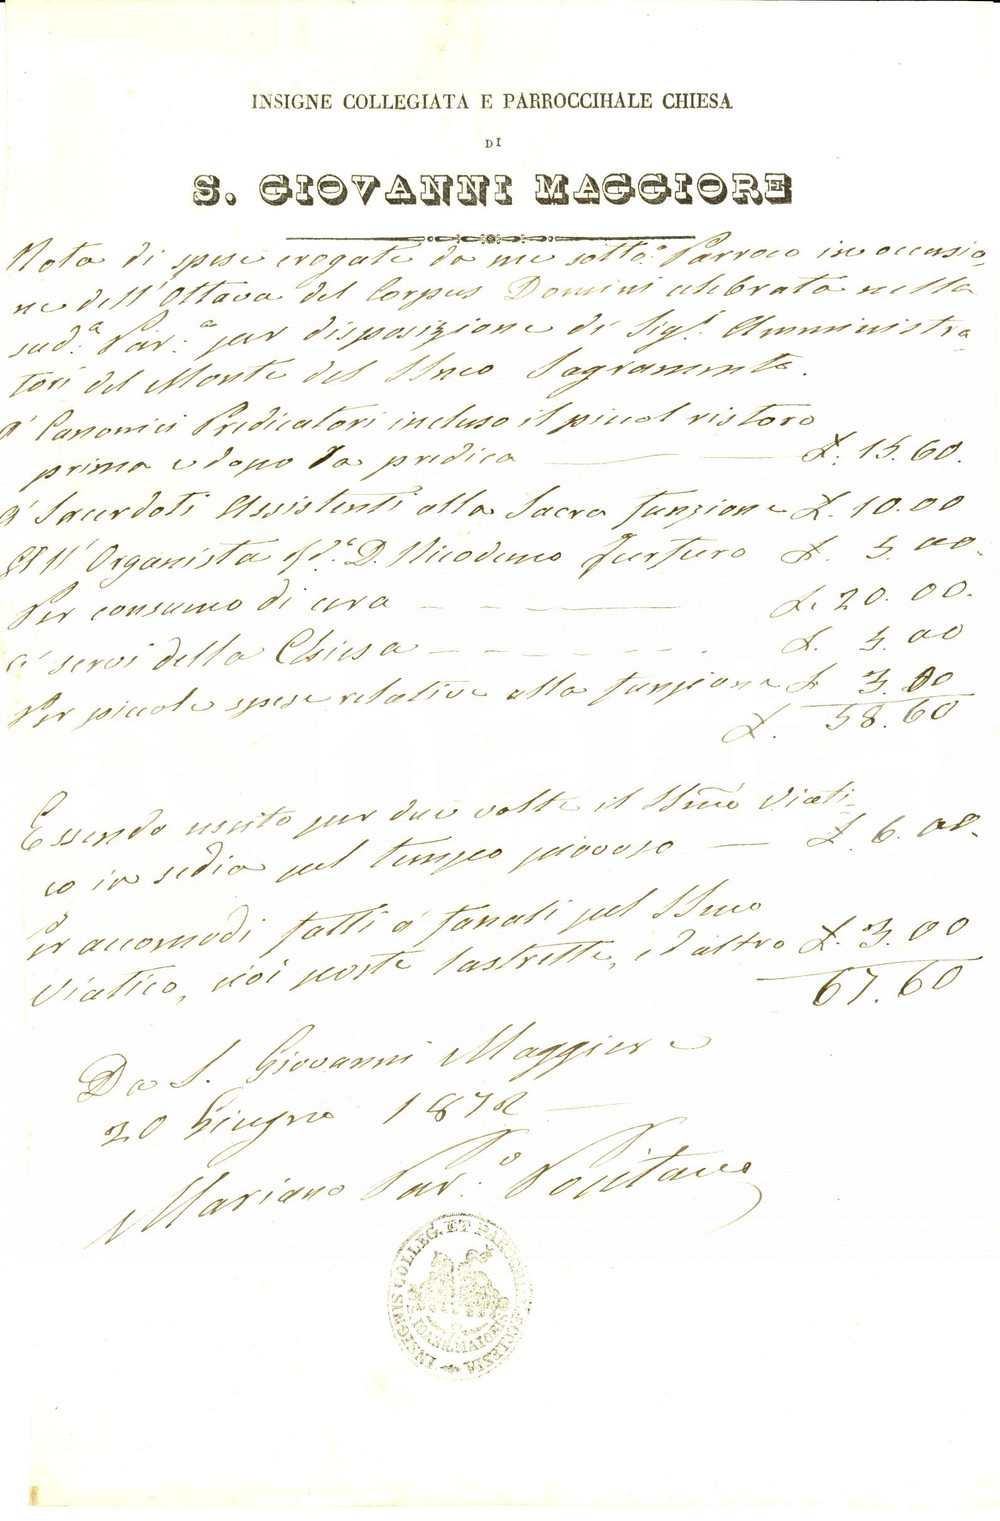 INSIGNE COLLEGIATA E PARROCCIHALE CHIESA
DI
S. GIOVANNI MAGGIORE
Nota di spese erogate da me sotto.º Parroco in occasio-
ne dell'Ottava del Corpus Domini celebrata nella
sud.ª Par.ª per disposizione di Sig.ⁱ Amministra-
tori del Monte del SSmo Sagramento.
A' Canonici Predicatori incluso il piccol ristoro
prima e dopo la predica £. 15.60.
A' Sacerdoti Assistenti alla Sacra funzione £. 10.00
All'Organista D. Nicodemo £. 5.00.
Per consumo di cera £. 20.00.
A' servi della Chiesa £. 5.00
Per piccole spese relative alla funzione £. 3.00
£. 58.60
Essendo uscito per due volte il SSmo Viati-
co in sedia pel tempo piovoso £. 6.00.
Per accomodi fatti a' fanali pel SSmo
Viatico, cioè poste lastrette, ed altro £. 3.00
67.60
Da S. Giovanni Maggiore
20 Giugno 1872
Mariano Par.º
INSIGNIS COLLEG. ET PAROCHI. ECCLESIA
IOANN. MAIORIS